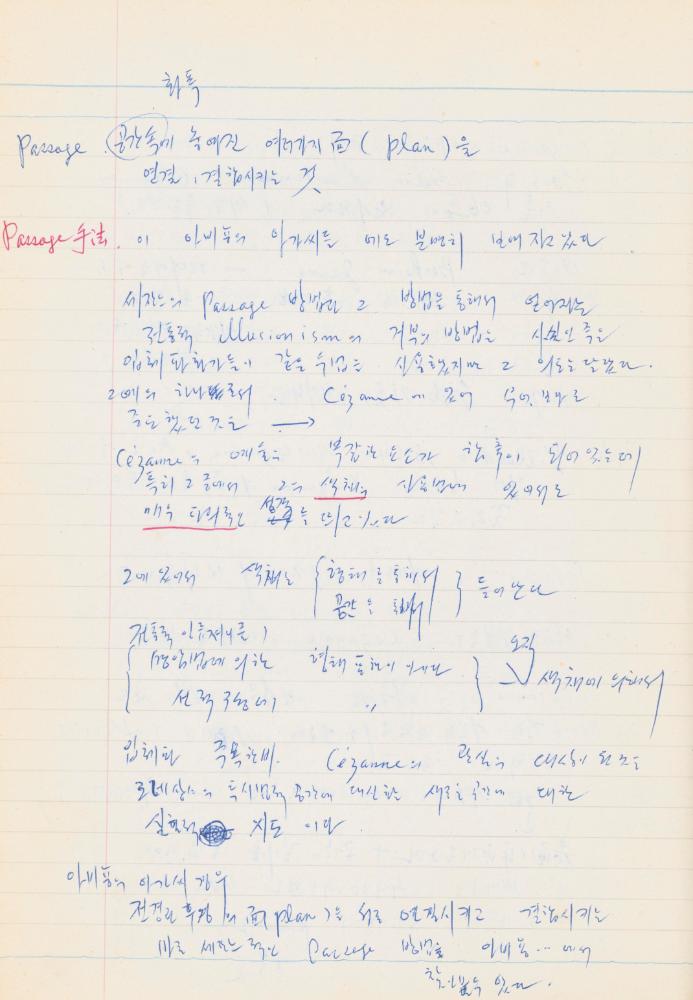 화폭
Passage. 공간속에 놓여진 여러가지 面(plan)을
연결, 결합시키는 것
Passage 手法. 이 아비뇽의 아가씨들 에도 분명히 보여지고 있다
세잔느의 Passage 방법은 그 방법을 통해서 얻어지는
전통적 illusionism의 거부의 방법을
입체파화가들이 같은 수법을 사용했지만 그 의도는 달랐다.
Cézanne에 있어 무엇보다
→
Cézanne의 예술은 복잡한 요소가 함축이 되어 있는데
특히 그 중에서 그의 색채의 사용법에 있어서도
매우 성격을 띄고 있다
그에 있어서 색채는 { 형태를 통해서
공간을 통해서 } 들어난다
{ 명암법에 의한 형태 표현이 아니다
선적 〃 } 오직 → 색채에 의해서
입체파 주목한 바. Cézanne의 관심의 대상이 된 것은
르네상스의 투시법적 공간에 대신하는 새로운 공간에 대한
실험적 시도 이다
아비뇽의 아가씨 경우
전경과 후경의 面(plan)을 서로 연결시키고 결합시키는
바로 세잔느적인 Passage 방법을 아비뇽... 에서
찾아볼수 있다.